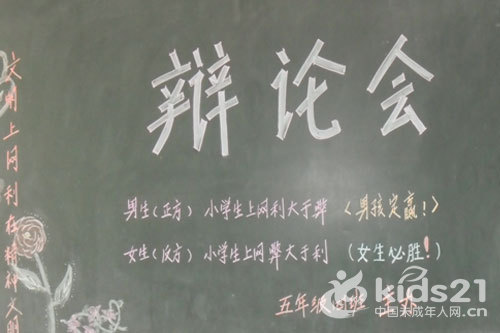 辩论会
男生(正方) 小学生上网利大于弊 〈男孩定赢!〉
女生(反方) 小学生上网弊大于利 (女生必胜!)
五年级四班 主办
文明上网利在精神文明
kids21
中国未成年人网